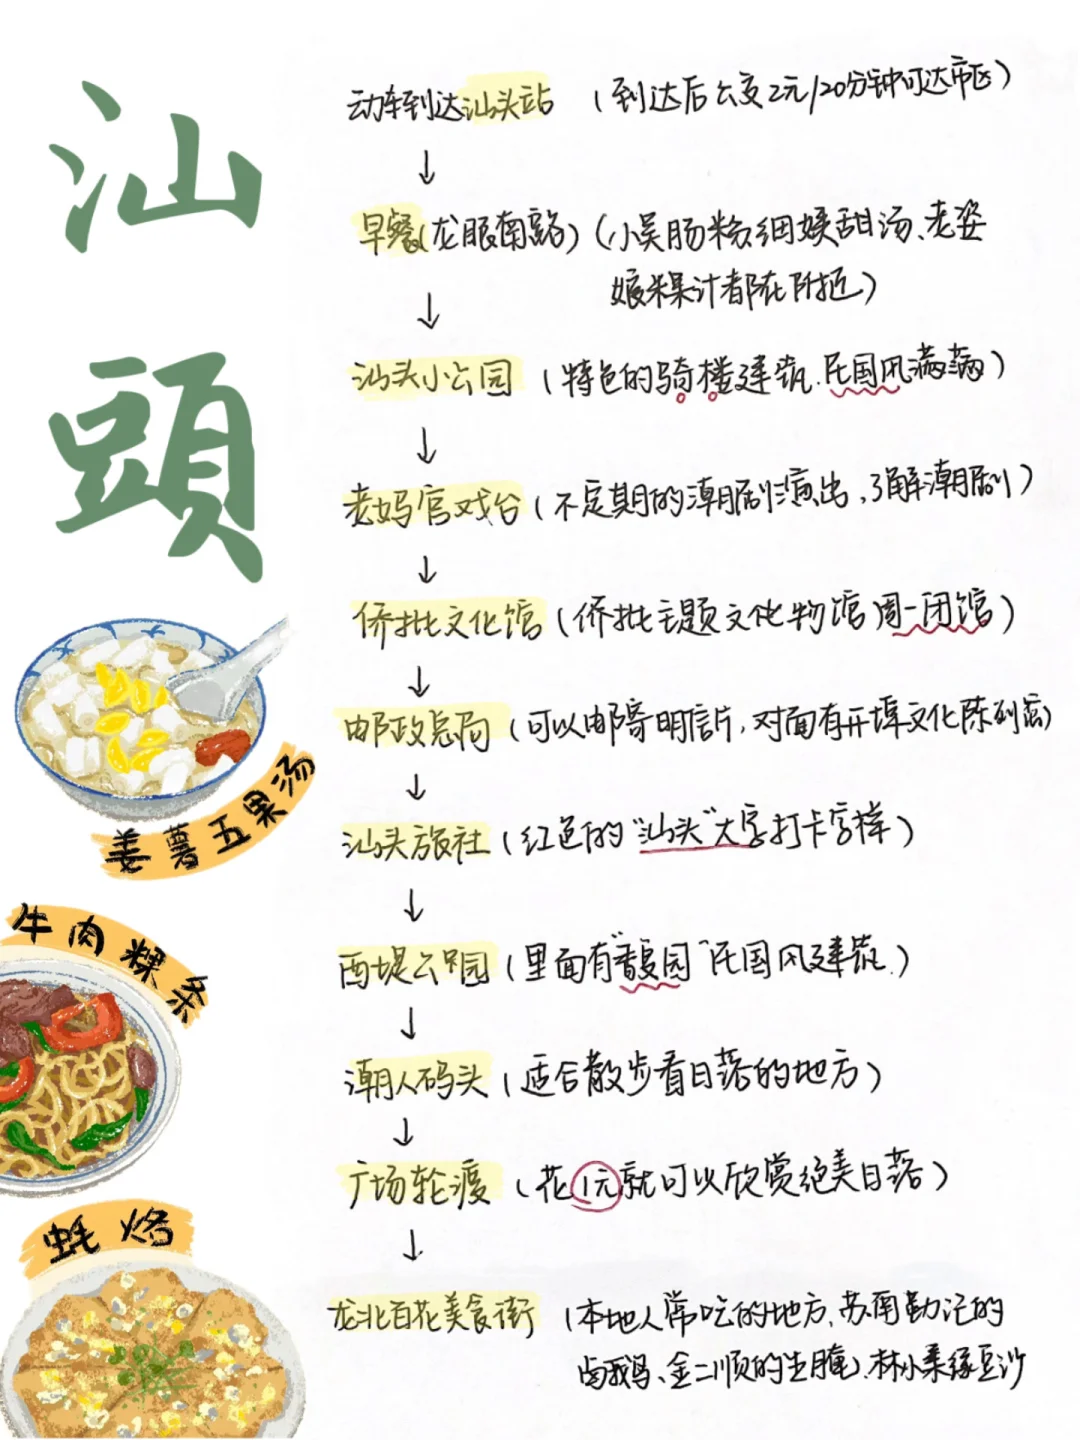 汕頭
动车到达汕头站 (到达后公交2元/20分钟可达市区)
↓
早餐(龙眼南路) (小吴肠粉、细姨甜汤、老姿
娘粿汁都在附近)
↓
汕头小公园 (特色的骑楼建筑.民国风满满)
↓
老妈宫戏台 (不定期的潮剧演出,了解潮剧)
↓
侨批文化馆 (侨批主题文化物馆 周一闭馆)
↓
邮政总局 (可以邮寄明信片,对面有开埠文化陈列馆)
↓
汕头旅社 (红色的"汕头"大字打卡字样)
↓
西堤公园 (里面有"馥园"民国风建筑.)
↓
潮人码头 (适合散步看日落的地方)
↓
广场轮渡 (花1元就可以欣赏绝美日落)
↓
龙北百花美食街 (本地人常吃的地方、苏南勤记的
卤鹅、金二顺的生腌、林小柔绿豆沙
姜薯五果汤
牛肉粿条
蚝烙